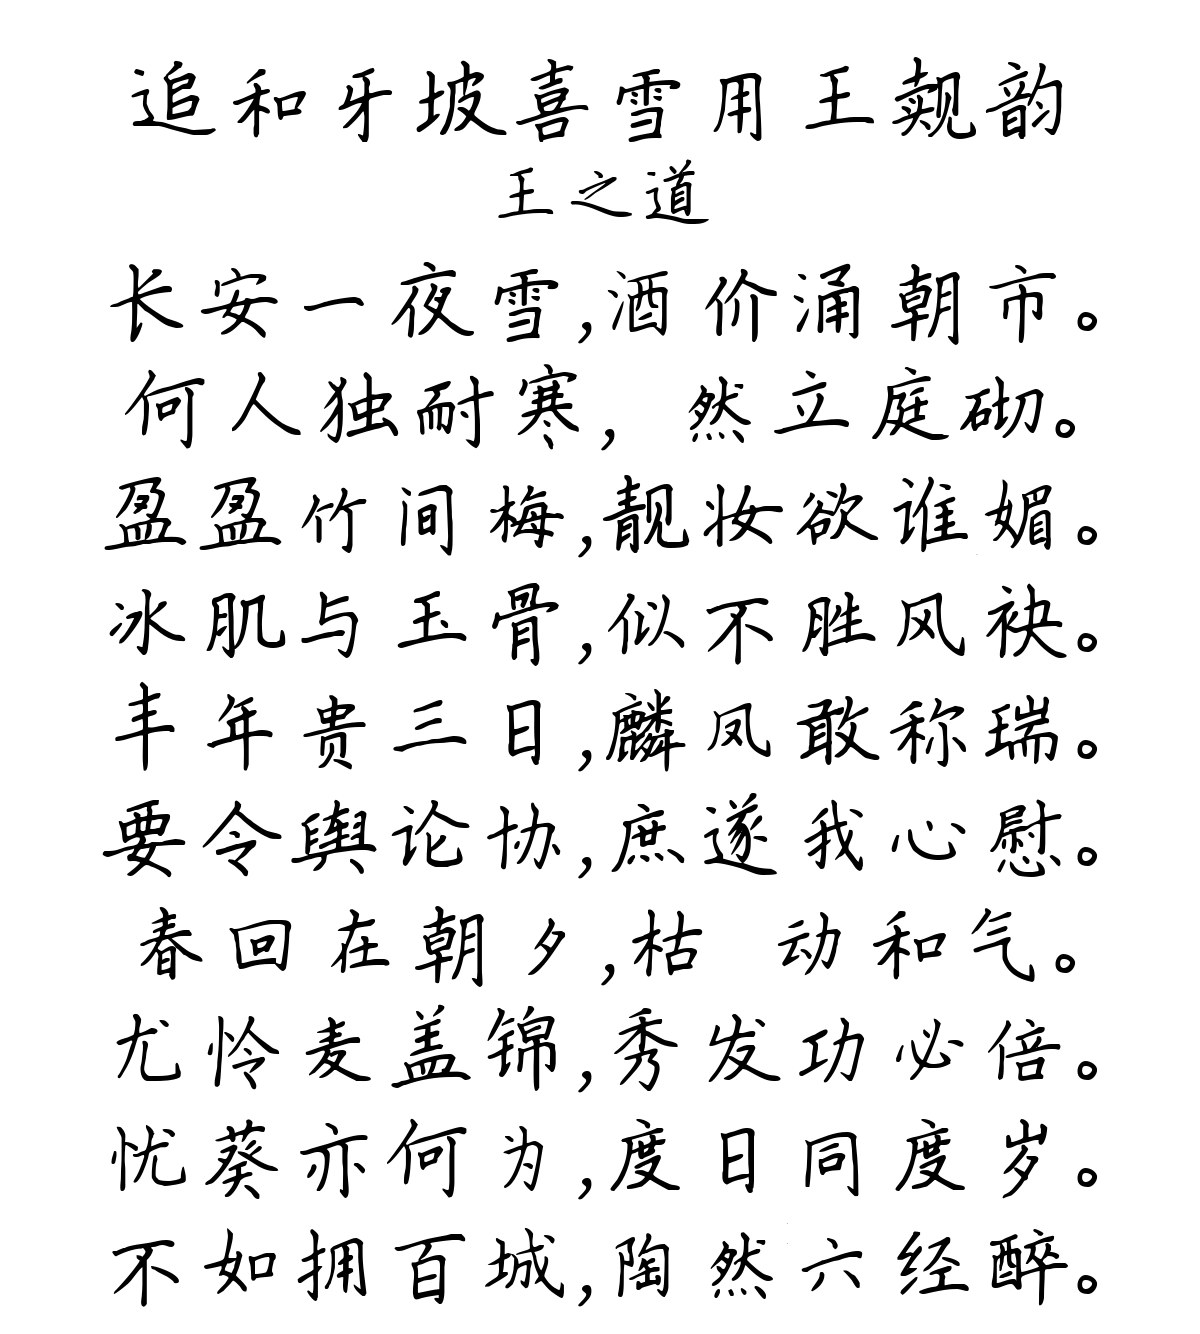 追和牙坡喜雪用王觌韵
王之道
长安一夜雪,酒价涌朝市。
何人独耐寒, 然立庭砌。
盈盈竹间梅,靓妆欲谁媚。
冰肌与玉骨,似不胜风袂。
丰年贵三日,麟凤敢称瑞。
要令舆论协,庶遂我心慰。
春回在朝夕,枯 动和气。
尤怜麦盖锦,秀发功必倍。
忧葵亦何为,度日同度岁。
不如拥百城,陶然六经醉。